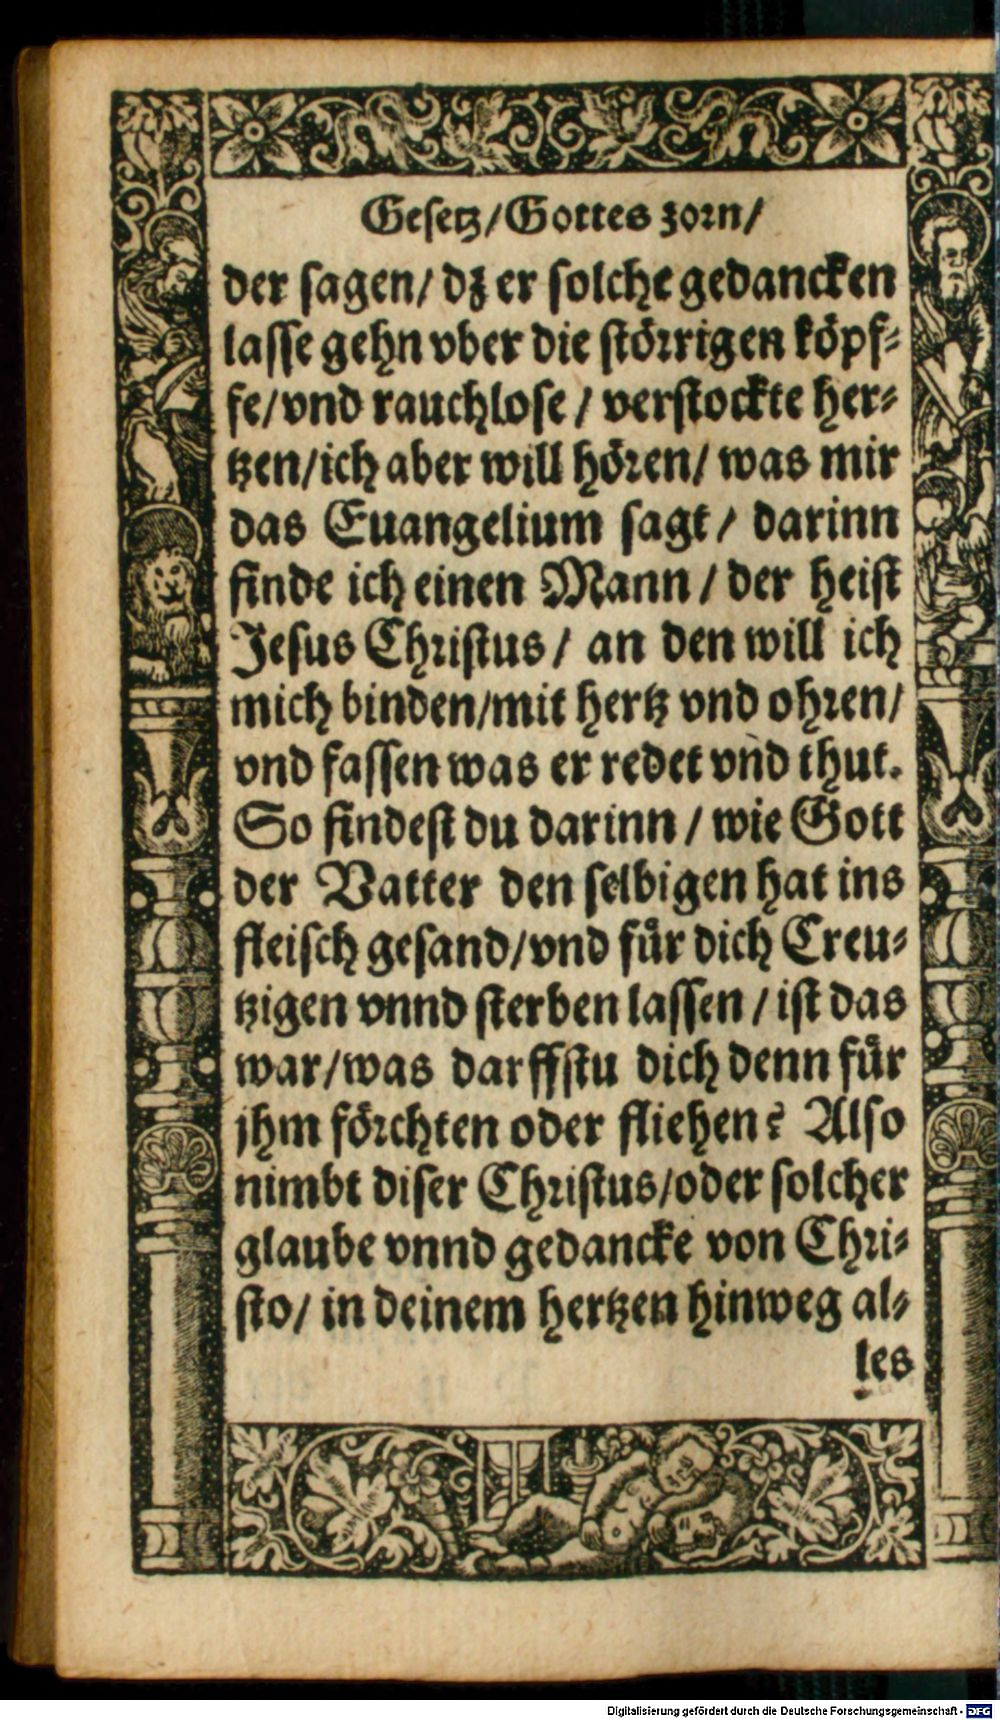 Gesetz/Gottes zorn/
der sagen/ dz er solche gedancken
lasse gehn vber die störrigen köpf-
fe/vnd rauchlose/ verstockte her-
tzen/ich aber will hören/ was mir
das Euangelium sagt/ darinn
finde ich einen Mann/ der heist
Jesus Christus/ an den will ich
mich binden/mit hertz vnd ohren/
vnd fassen was er redet vnd thut.
So findest du darinn/ wie Gott
der Vatter den selbigen hat ins
fleisch gesand/vnd fuͤr dich Creu-
tzigen vnnd sterben lassen/ ist das
war/was darffstu dich denn fuͤr
jhm förchten oder fliehen? Also
nimbt diser Christus/oder solcher
glaube vnnd gedancke von Chri-
sto/ in deinem hertzen hinweg al-
les
Digitalisierung gefördert durch die Deutsche Forschungsgemeinschaft - DFG